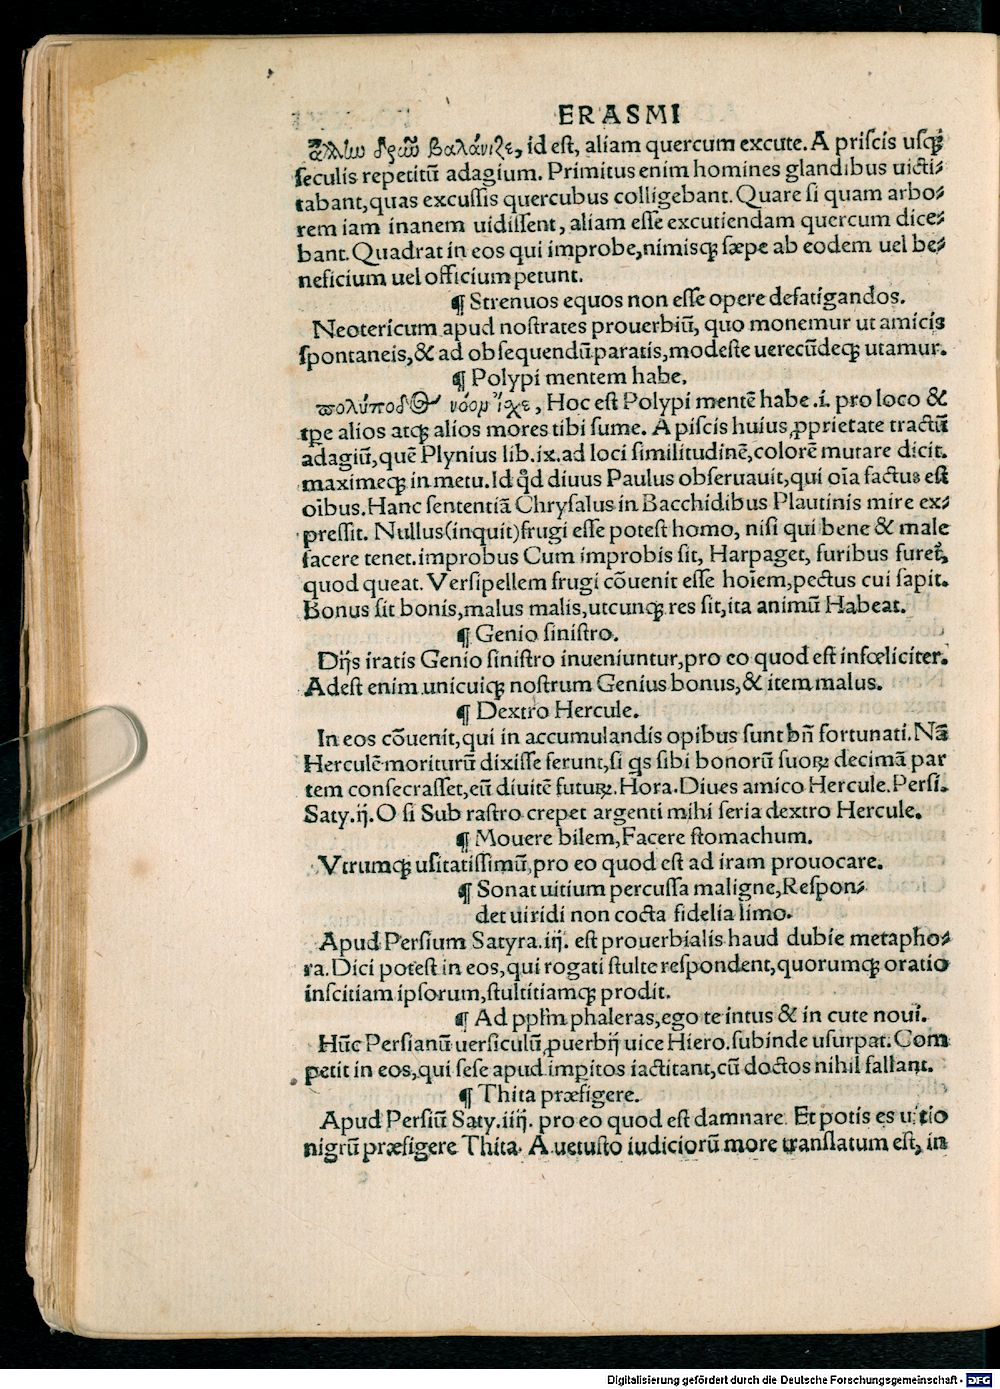 ERASMI
ἄλλην δρῦν βαλάνιζε, id est, aliam quercum excute. A priſcis uſq;
ſeculis repetitū adagium. Primitus enim homines glandibus uicti⸗
tabant, quas excuſſis quercubus colligebant. Quare ſi quam arbo⸗
rem iam inanem uidiſſent, aliam eſſe excutiendam quercum dice⸗
bant. Quadrat in eos qui improbe, nimisq; ſæpe ab eodem uel be⸗
neficium uel officium petunt.
¶ Strenuos equos non eſſe opere defatigandos.
Neotericum apud noſtrates prouerbiū, quo monemur ut amicis
ſpontaneis, & ad obſequendū paratis, modeſte uerecūdeq; utamur.
¶ Polypi mentem habe.
πολύποδος νόομ ἴχε, Hoc eſt Polypi mentē habe .i. pro loco &
tp̄e alios atq; alios mores tibi ſume. A piſcis huius ꝓprietate tractū
adagiū, quē Plynius lib. ix. ad loci ſimilitudinē, colorē mutare dicit.
maximeq; in metu. Id qd̄ diuus Paulus obſeruauit, qui oīa factus eſt
oībus. Hanc ſententiā Chryſalus in Bacchidibus Plautinis mire ex⸗
preſſit. Nullus (inquit) frugi eſſe poteſt homo, niſi qui bene & male
facere tenet. improbus Cum improbis ſit, Harpaget, furibus furet᷑,
quod queat. Verſipellem frugi cōuenit eſſe hoīem, pectus cui ſapit.
Bonus ſit bonis, malus malis, utcunq; res ſit, ita animū Habeat.
¶ Genio ſiniſtro.
Dijs iratis Genio ſiniſtro inueniuntur, pro eo quod eſt infœliciter.
Adeſt enim unicuiq; noſtrum Genius bonus, & item malus.
¶ Dextro Hercule.
In eos cōuenit, qui in accumulandis opibus ſunt bn̄ fortunati. Nā
Herculē moriturū dixiſſe ferunt, ſi q̇s ſibi bonorū ſuoꝝ decimā par
tem conſecraſſet, eū diuitē futuꝝ. Hora. Diues amico Hercule. Perſi.
Saty. ij. O ſi Sub raſtro crepet argenti mihi ſeria dextro Hercule.
¶ Mouere bilem, Facere ſtomachum.
Vtrumq; uſitatiſſimū, pro eo quod eſt ad iram prouocare.
¶ Sonat uitium percuſſa maligne, Reſpon⸗
det uiridi non cocta fidelia limo.
Apud Perſium Satyra. iij. eſt prouerbialis haud dubie metapho⸗
ra. Dici poteſt in eos, qui rogati ſtulte reſpondent, quorumq; oratio
inſcitiam ipſorum, ſtultitiamq; prodit.
¶ Ad pp̄lm phaleras, ego te intus & in cute noui.
Hūc Perſianū uerſiculū, ꝓuerbij uice Hiero. ſubinde uſurpat. Com
petit in eos, qui ſeſe apud imꝑitos iactitant, cū doctos nihil fallant.
¶ Thita præfigere.
Apud Perſiū Saty. iiij. pro eo quod eſt damnare. Et potis es uitio
nigrū præfigere Thita. A uetuſto iudiciorū more tranſlatum eſt, in
Digitalisierung gefördert durch die Deutsche Forschungsgemeinschaft - DFG